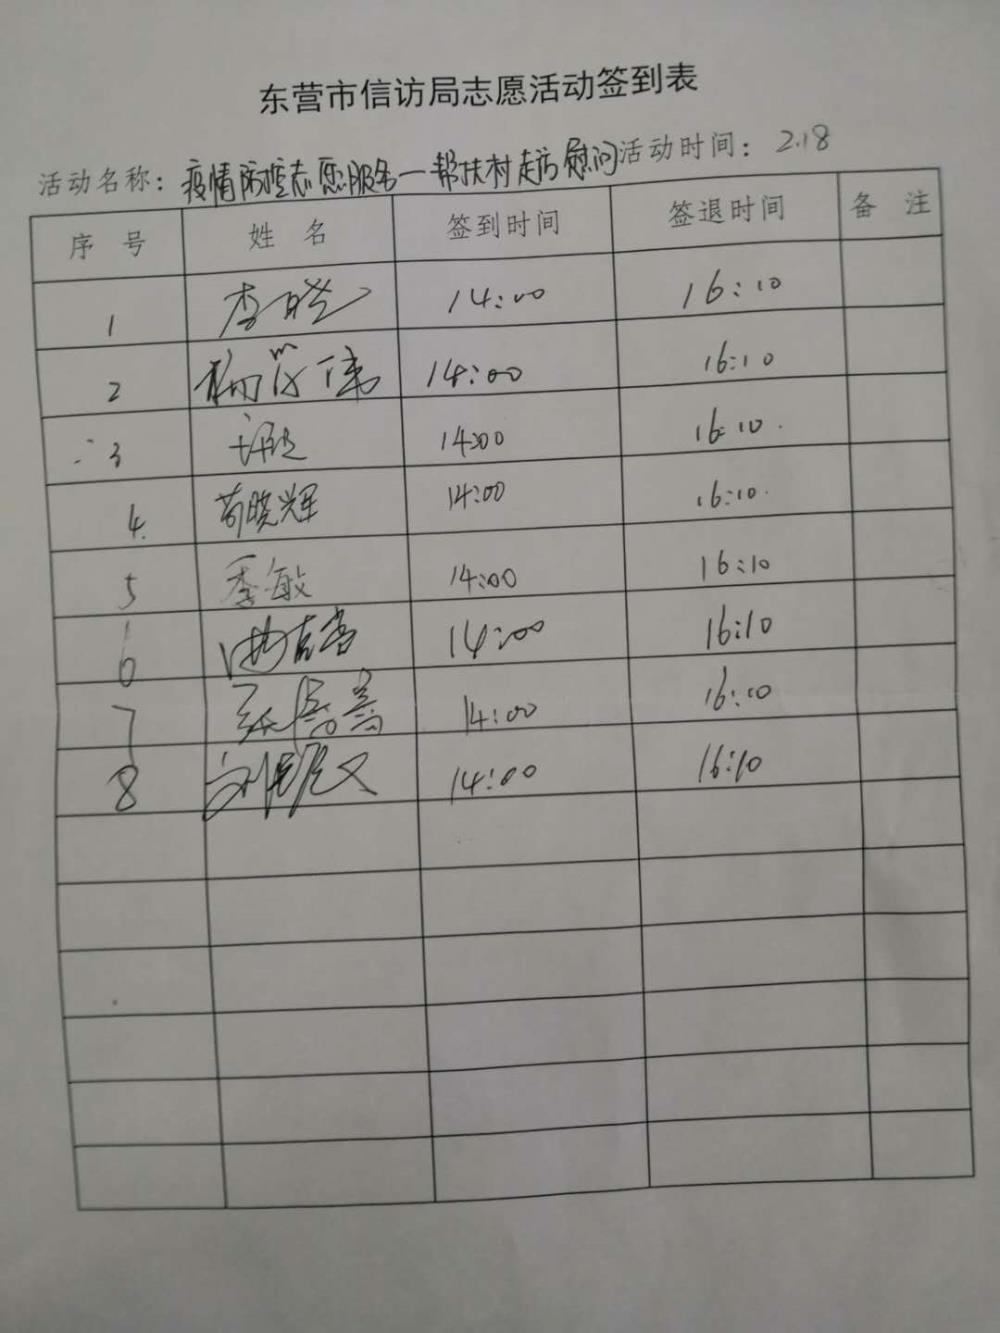 东营市信访局志愿活动签到表
活动名称：疫情防控志愿服务一帮扶村走访慰问 活动时间：2.18
序 号 姓 名 签到时间 签退时间 备 注
1 李 14:00 16:10
2 14:00 16:10
3 14:00 16:10
4. 苟晓辉 14:00 16:10
5 季敏 14:00 16:10
6 14:00 16:10
7 14:00 16:10
8 刘 14:00 16:10